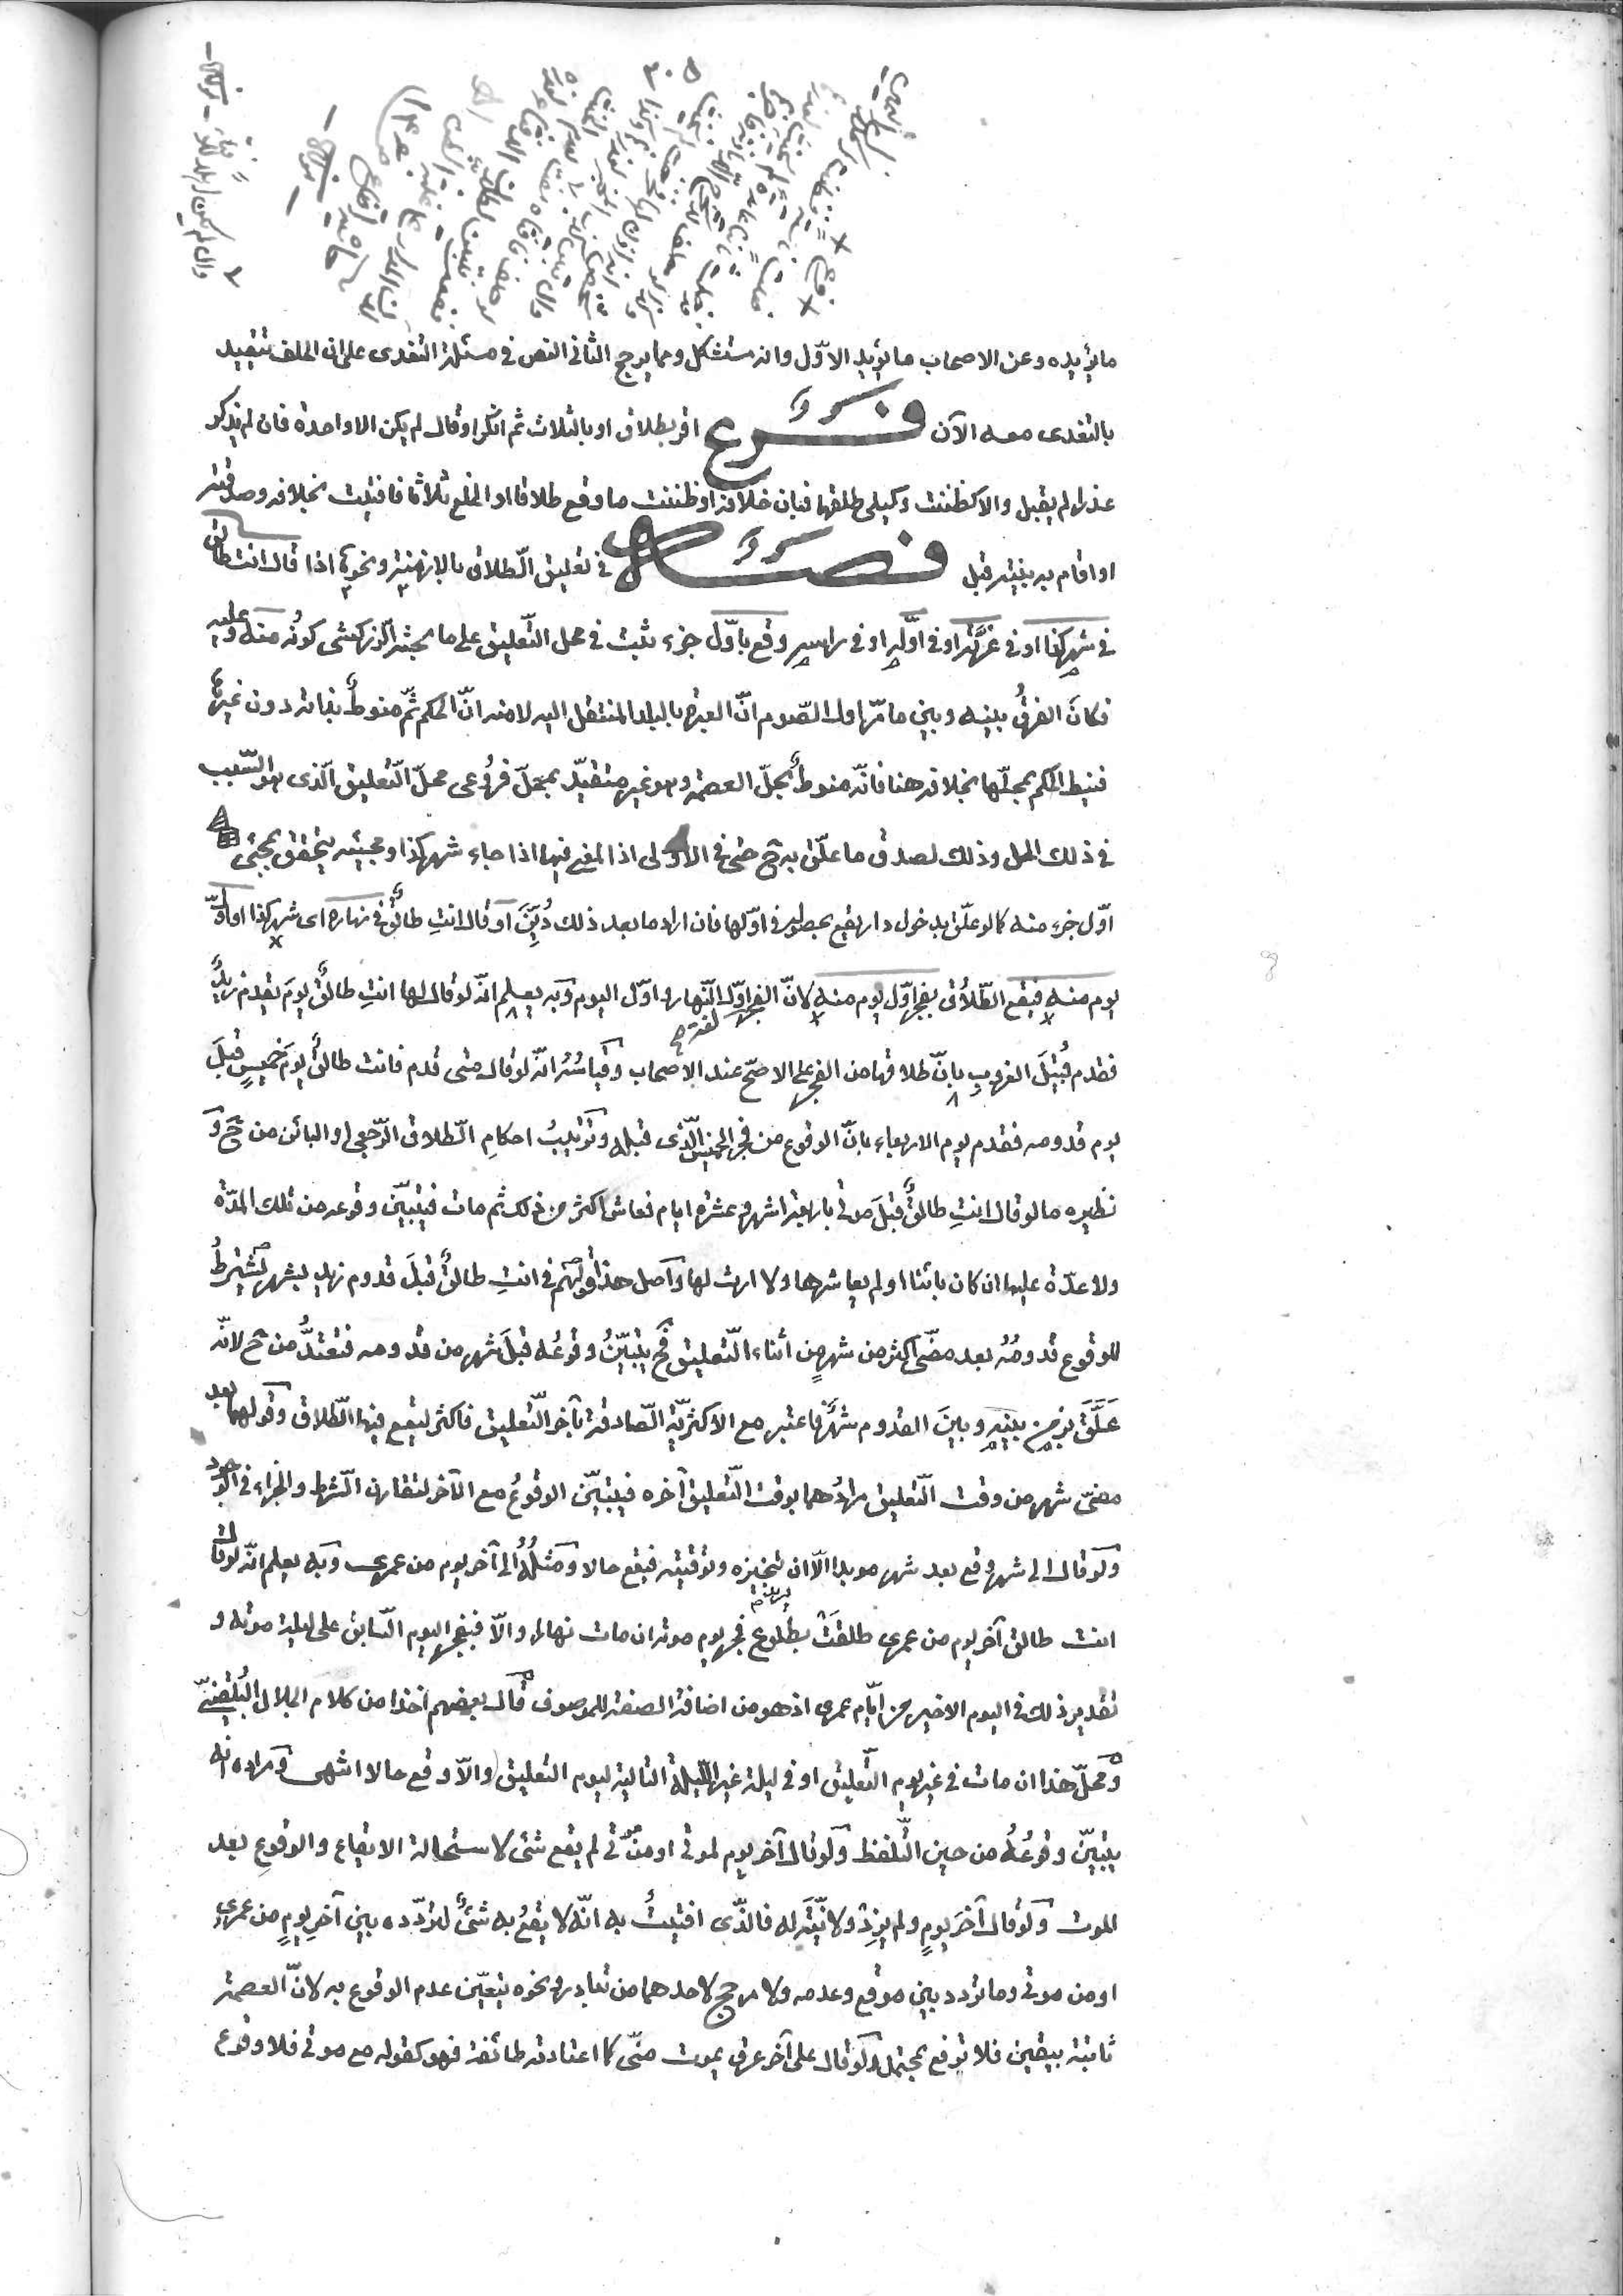 ما يؤيده وعن الاصحاب ما يؤيد الاوّل وانه مستشكل ومما يرجح الثاني النص في مسئلة التغدى على ان الحلف تقييد
بالتغدى معه الآن فرع اقر بطلاق او بالثلاث ثم انكر او قال لم يكن الا واحدة فان لم يذكر
عذرا لم يقبل والا كظننت وكيلي طلقها فبان خلافه او ظننت ما وقع طلاقا او الخلع ثلاثا فافتيت بخلافه وصدقته
او اقام به بينة قبل فصل في تعليق الطّلاق بالازمنة ونحوها اذا قال انت طالق
في شهر كذا او في غرّته او في اوّله او في راسه وقع باوّل جزء ثبت في محل التّعليق على ما بحثه الزركشى كونُه منه وعليه
فكان الفرقُ بينه وبين ما مرّ اول الصّوم انّ العبرة بالبلد المنتقل اليه لا منه انّ الحكم ثَمّ منوطٌ بذاته دون غيرها
فنيط الحكم بمحلّها بخلافه هنا فانّه منوطٌ بحلّ العصمة وهو غير متقيّد بمحلّ فرُوعى محلّ التّعليق الّذى هو السّبب
في ذلك المحل وذلك لصدق ما علّق به ح حتى في الاولى اذ المعنى فيها اذا جاء شهر كذا ومجيئه يتحقق بمجئ
اوّل جزء منه كما لو علّق بدخول دار يقع بحصوله في اوّلها فان اراد ما بعد ذلك دُيّنَ او قال انتِ طالقٌ في نهاره اى شهر كذا او اوّل
يوم منه فيقع الطّلاق بفجر اوّل يوم منه لانّ الفجر اوّل النّهار واوّل اليوم وبه يعلم انّه لو قال لها انتِ طالقٌ يومَ يقدم زيدٌ
فقدم قُبَيْلَ الغروب بانَ طلاقها من الفجر على الاصحّ عند الاصحاب وقياسُه انّه لو قال متى قدم فانت طالقٌ يومَ خميسٍ قبلَ
يوم قدومه فقدم يوم الاربعاء بانَ الوقوع من فجر الخميس الّذى قبله وترتيبُ احكامِ الطّلاق الرّجعى او البائن من ح و
نظيره ما لو قال انتِ طالقٌ قبلَ موتي باربعة اشهر وعشرة ايام فعاش اكثر من ذلك ثم مات فيتبيّن وقوعه من تلك المدّة
ولا عدّة عليها ان كان بائنا او لم يعاشرها ولا ارث لها واصل هذا قولهم في انتِ طالقٌ قبلَ قدوم زيد بشهر يُشترطُ
للوقوع قدومُه بعد مضىّ اكثر من شهر من أثناء التّعليق فح يتبيّنُ وقوعُه قبلَ شهر من قدومه فتعتدُّ من ح لانّه
عَلَّقَ بزمن بينه وبينَ القدوم شهر فاعتبر مع الاكثريّة الصّادقة بآخر التّعليق فاكثر ليقع فيها الطّلاق وقولهما بعد
مضىّ شهر من وقت التّعليق مرادُهما بوقت التّعليق آخره فيتبيّن الوقوعُ مع الآخر لتقارن الشّرط والجزاء في الوجود
ولو قال الى شهر وقع بعد شهر مويدا الّا ان يريد تنجيزه وتوقيته فيقع حالا ومثلُه الى آخر يوم من عمرى وبه يعلم انّه لو قال
انت طالق آخر يوم من عمرى طلقَتْ بطلوع فجر يوم موته ان مات نهارا والّا فبفجر اليوم السّابق على ليلة موته و
تقدير ذلك في اليوم الاخير من ايّام عمرى اذ هو من اضافة الصفة للموصوف قال بعضهم اخذا من كلام الجلال البلقينىّ
ومحلّ هذا ان مات في غير يوم التّعليق او في ليلة غير اللّيلة التالية ليوم التعليق والّا وقع حالا انتهى ومراده انه
يتبيّن وقوعُه من حين التّلفظ ولو قال آخر يوم لموتي او من موتي لم يقع شئ لاستحالة الايقاع والوقوع بعد
الموت ولو قال آخرَ يومٍ ولم يزدْ ولا نيّة له فالذّى افتيتُ به انّه لا يقعُ به شئٌ لتردّده بين آخرِ يومٍ من عمرى
او من موتي وما تردد بين موقع وعدمه ولا مرجح لاحدهما من تبادر ونحوه يتعيّن عدم الوقوع به لانّ العصمة
ثابتة بيقين فلا ترفع بمحتمل ولو قال على آخر عرق يموت منّى كما اعتادته طائفة فهو كقوله مع موتي فلا وقوع